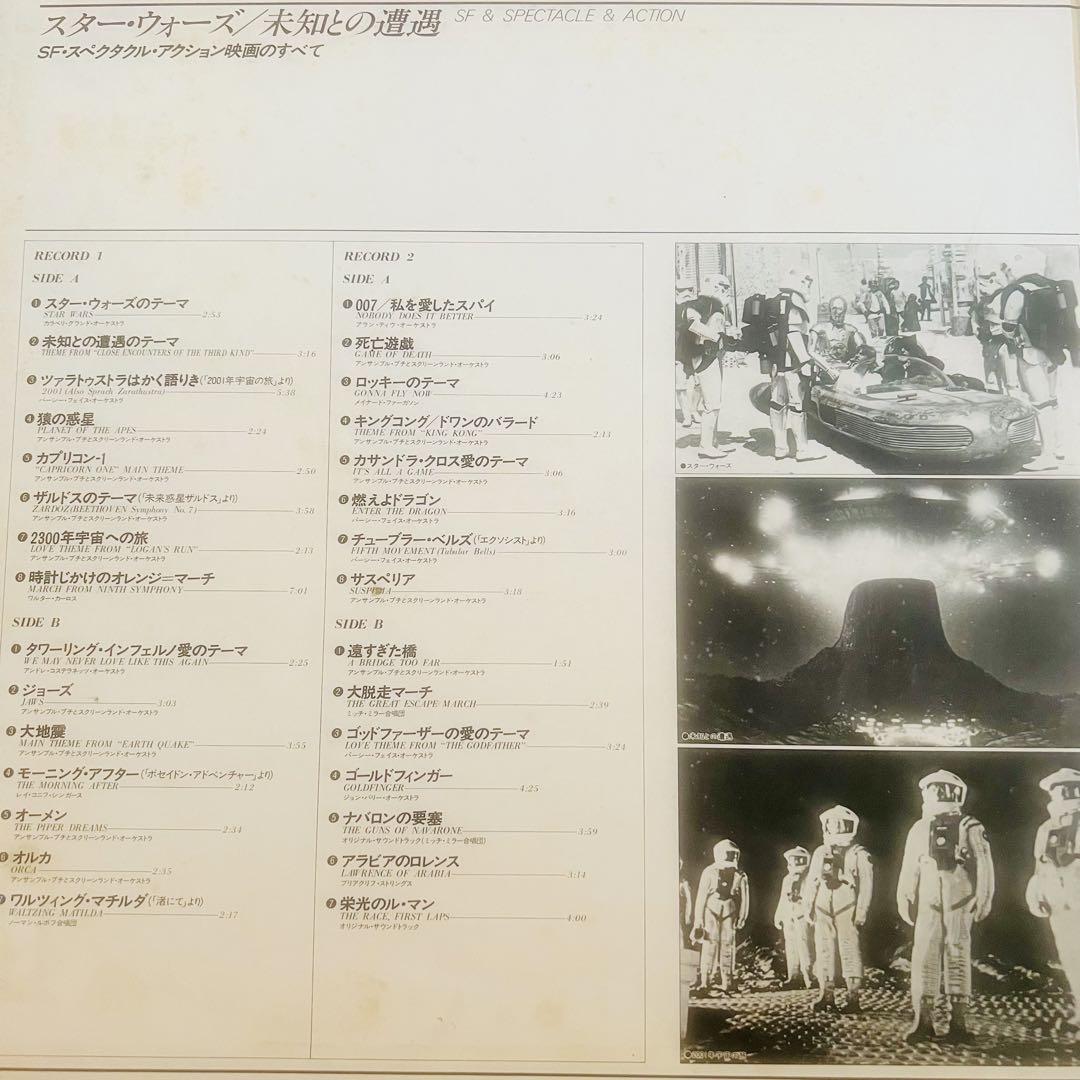 スター・ウォーズ/未知との遭遇 SF & SPECTACLE & ACTION
SF・スペクタクル・アクション映画のすべて
RECORD 1
SIDE A
❶ スター・ウォーズのテーマ
STAR WARS 2:53
カラベリ・グランド・オーケストラ
❷ 未知との遭遇のテーマ
THEME FROM "CLOSE ENCOUNTERS OF THE THIRD KIND" 3:16
アンサンブル・プチとスクリーンランド・オーケストラ
❸ ツァラトゥストラはかく語りき(「2001年宇宙の旅」より)
2001 (Also Sprach Zarathustra) 5:38
パーシー・フェイス・オーケストラ
❹ 猿の惑星
PLANET OF THE APES 2:24
アンサンブル・プチとスクリーンランド・オーケストラ
❺ カプリコン-1
"CAPRICORN ONE" MAIN THEME 2:50
アンサンブル・プチとスクリーンランド・オーケストラ
❻ ザルドスのテーマ(「未来惑星ザルドス」より)
ZARDOZ(BEETHOVEN Symphony No. 7) 3:58
アンサンブル・プチとスクリーンランド・オーケストラ
❼ 2300年宇宙への旅
LOVE THEME FROM "LOGAN'S RUN" 2:13
アンサンブル・プチとスクリーンランド・オーケストラ
❽ 時計じかけのオレンジ=マーチ
MARCH FROM NINTH SYMPHONY 7:01
ワルター・カーロス
SIDE B
❶ タワーリング・インフェルノ愛のテーマ
WE MAY NEVER LOVE LIKE THIS AGAIN 2:25
アンドレ・コステラネッツ・オーケストラ
❷ ジョーズ
JAWS 3:03
アンサンブル・プチとスクリーンランド・オーケストラ
❸ 大地震
MAIN THEME FROM "EARTH QUAKE" 3:55
アンサンブル・プチとスクリーンランド・オーケストラ
❹ モーニング・アフター(「ポセイドン・アドベンチャー」より)
THE MORNING AFTER 2:12
レイ・コニフ・シンガース
❺ オーメン
THE PIPER DREAMS 2:34
アンサンブル・プチとスクリーンランド・オーケストラ
❻ オルカ
ORCA 2:35
アンサンブル・プチとスクリーンランド・オーケストラ
❼ ワルツィング・マチルダ(「渚にて」より)
WALTZING MATILDA 2:17
ノーマン・ルボフ合唱団
RECORD 2
SIDE A
❶ 007/私を愛したスパイ
NOBODY DOES IT BETTER 3:24
アラン・ティウ・オーケストラ
❷ 死亡遊戯
GAME OF DEATH 3:06
アンサンブル・プチとスクリーンランド・オーケストラ
❸ ロッキーのテーマ
GONNA FLY NOW 4:23
メイナード・ファーガソン
❹ キングコング/ドワンのバラード
THEME FROM "KING KONG" 2:13
アンサンブル・プチとスクリーンランド・オーケストラ
❺ カサンドラ・クロス愛のテーマ
IT'S ALL A GAME 3:06
アンサンブル・プチとスクリーンランド・オーケストラ
❻ 燃えよドラゴン
ENTER THE DRAGON 3:16
パーシー・フェイス・オーケストラ
❼ チューブラー・ベルズ(「エクソシスト」より)
FIFTH MOVEMENT (Tabular Bells) 3:00
パーシー・フェイス・オーケストラ
❽ サスペリア
SUSPIRIA 3:18
アンサンブル・プチとスクリーンランド・オーケストラ
SIDE B
❶ 遠すぎた橋
A BRIDGE TOO FAR 1:51
アンサンブル・プチとスクリーンランド・オーケストラ
❷ 大脱走マーチ
THE GREAT ESCAPE MARCH 2:39
ミッチ・ミラー合唱団
❸ ゴッドファーザーの愛のテーマ
LOVE THEME FROM "THE GODFATHER" 3:24
パーシー・フェイス・オーケストラ
❹ ゴールドフィンガー
GOLDFINGER 4:25
ジョン・バリー・オーケストラ
❺ ナバロンの要塞
THE GUNS OF NAVARONE 3:59
オリジナル・サウンドトラック(ミッチ・ミラー合唱団)
❻ アラビアのロレンス
LAWRENCE OF ARABIA 3:14
ブリアクリフ・ストリングス
❼ 栄光のル・マン
THE RACE, FIRST LAPS 4:00
オリジナル・サウンドトラック
●スター・ウォーズ
●未知との遭遇
●2001年宇宙の旅